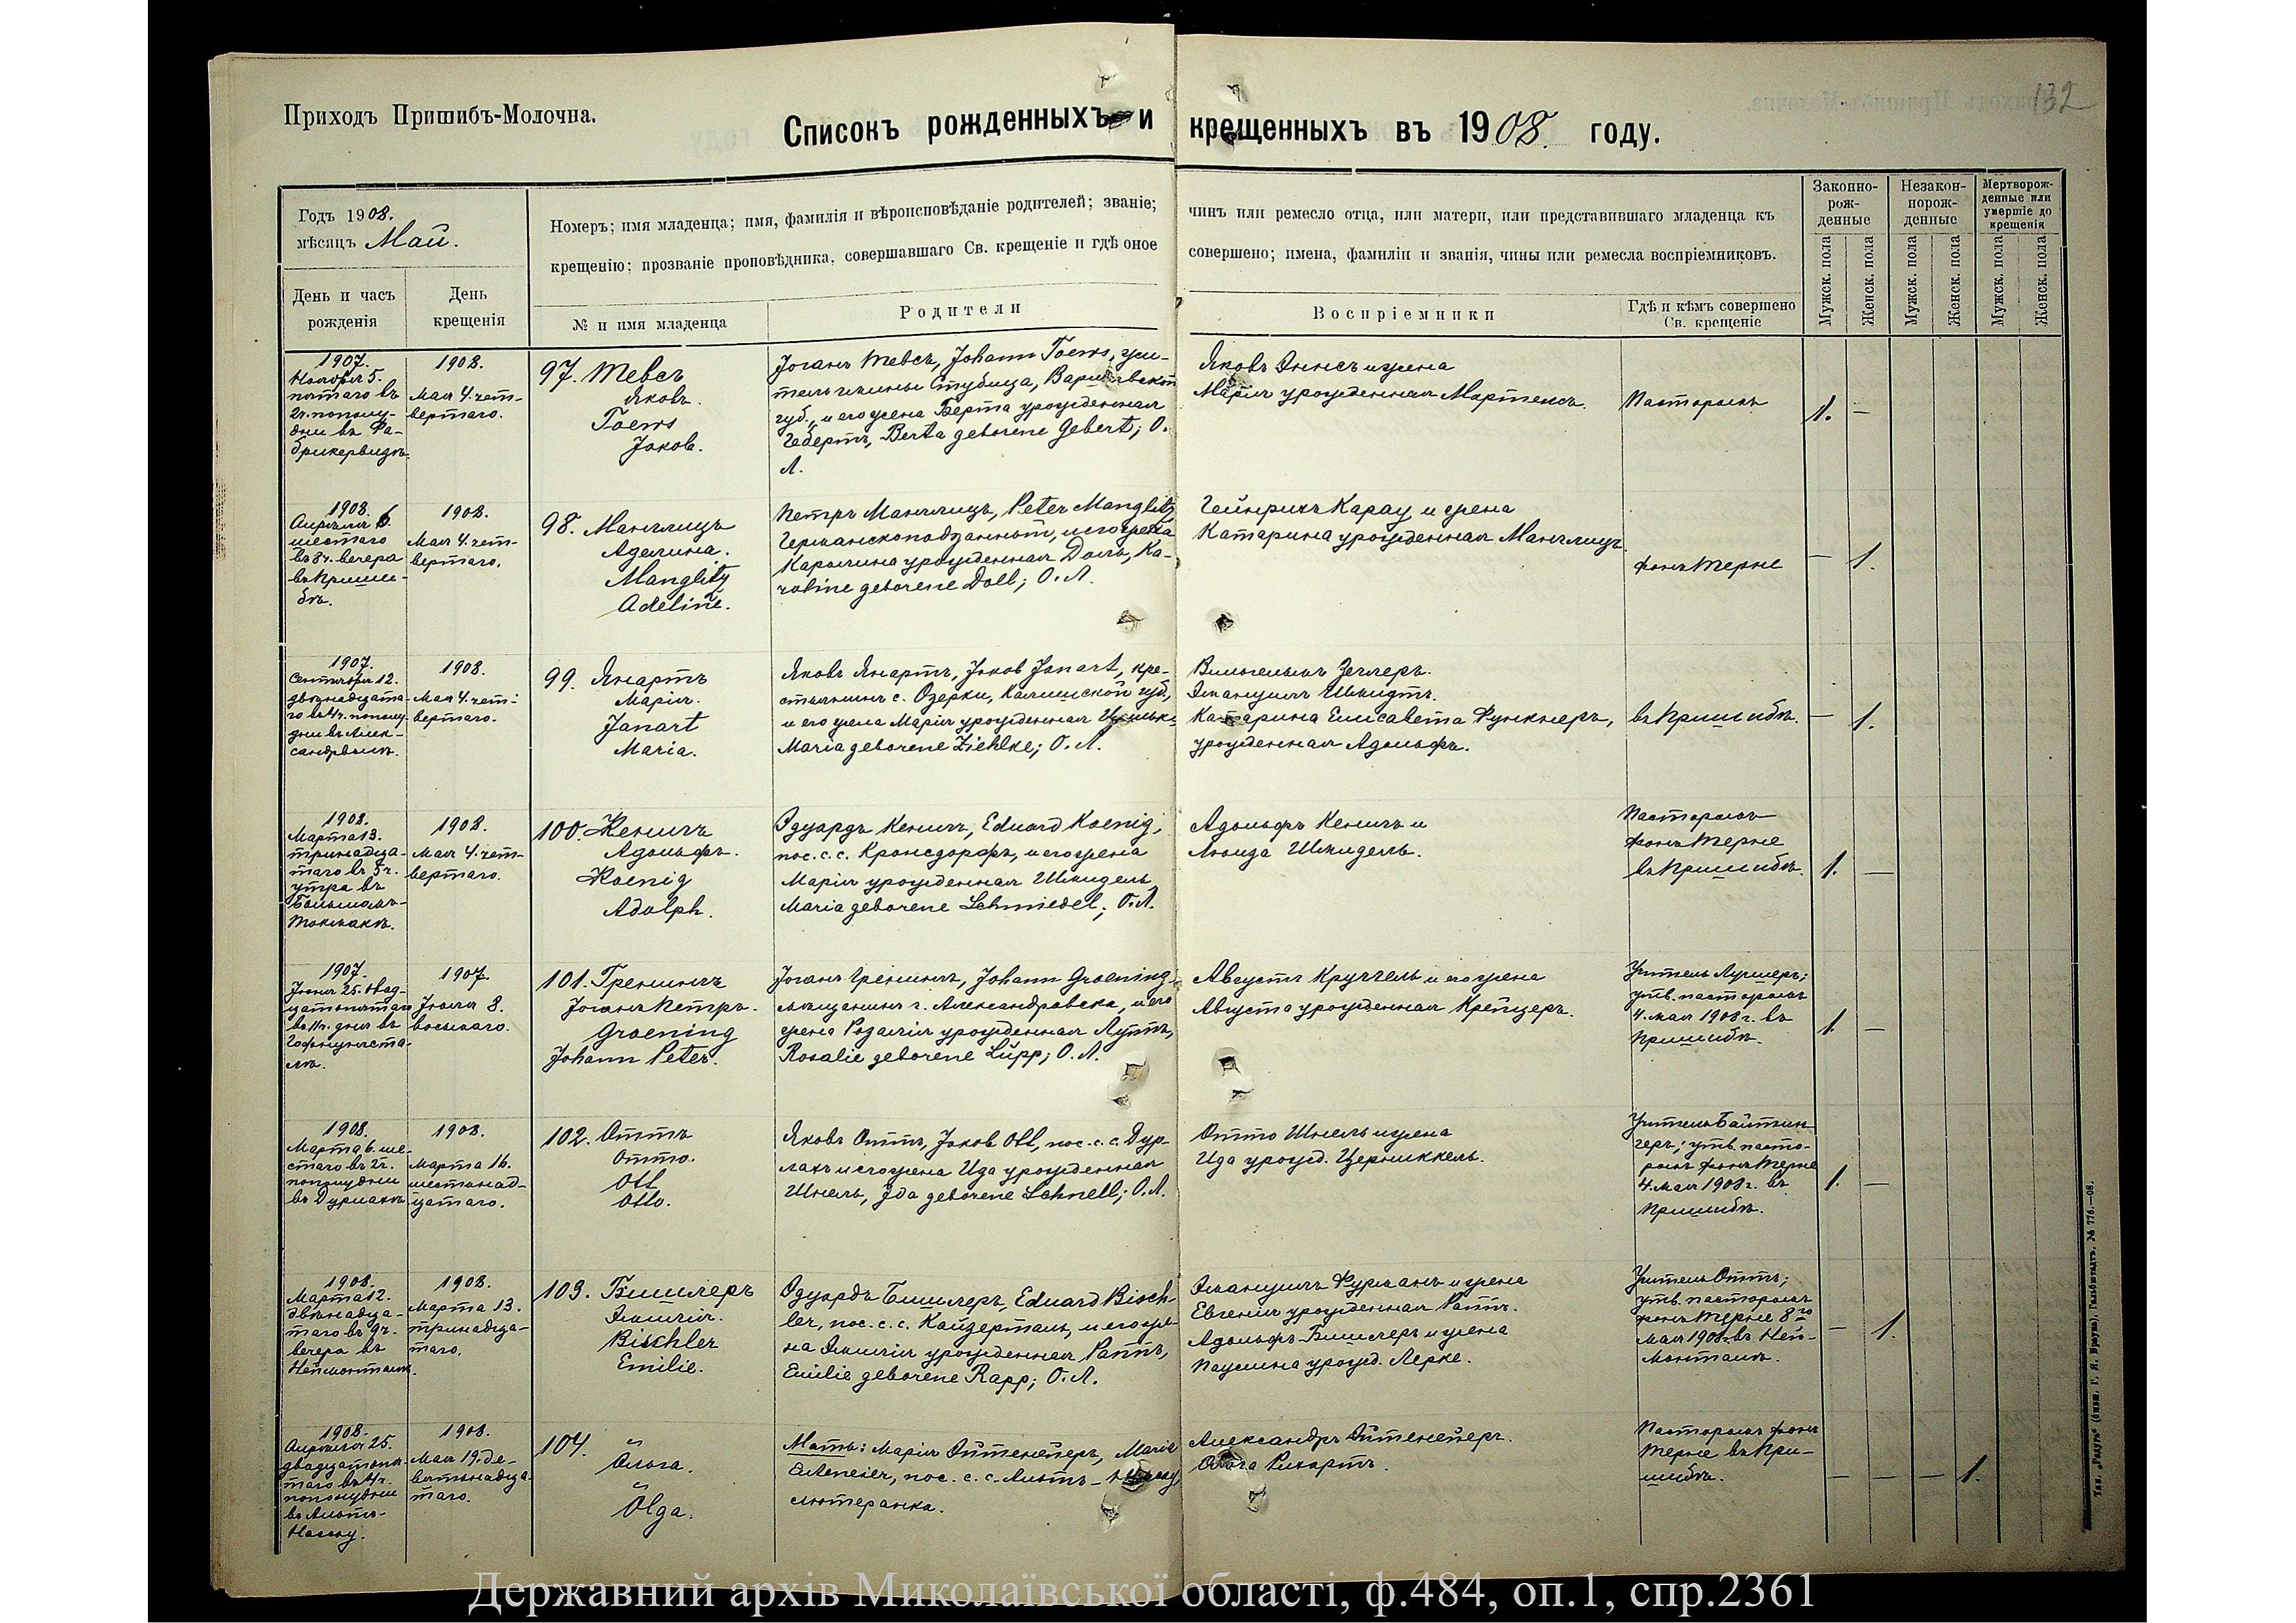 132
Приходъ Пришибъ-Молочна.
Списокъ рожденныхъ и крещенныхъ въ 1908. году.
Годъ 1908.
мѣсяцъ Май.
День и часъ рожденія
День крещенія
Номеръ; имя младенца; имя, фамилія и вѣроисповѣданіе родителей; званіе; чинъ или ремесло отца, или матери, или представившаго младенца къ
крещенію; прозваніе проповѣдника, совершавшаго Св. крещеніе и гдѣ оное совершено; имена, фамиліи и званія, чины или ремесла воспріемниковъ.
№ и имя младенца
Родители
Воспріемники
Гдѣ и кѣмъ совершено
Св. крещеніе
Законно-
рож-
денные
Незакон-
норож-
денные
Мертворож-
денные или
умершіе до
крещенія
Мужск. пола
Женск. пола
Мужск. пола
Женск. пола
Мужск. пола
Женск. пола
1907.
Ноября 5.
пятаго въ
2ч. пополу-
дни въ Фа-
брикервизѣ.
1908.
Мая 4. чет-
вертаго.
97. Тевсъ
Яковъ.
Toews
Jakob.
Іоганъ Тевсъ, Johann Toews,
губ., и его жена Берта урожденная
Гебертъ, Berta geborene Gebert; О.
Л.
Яковъ Эннсъ и жена
Марія урожденная Мартенсъ.
Пасторомъ
1. —
1908.
Апрѣля 6.
шестаго
въ 8ч. вечера
въ Приши-
бѣ.
1908.
Мая 4. чет-
вертаго.
98. Манглицъ
Аделина.
Manglitz
Adeline.
Петръ Манглицъ, Peter Manglitz
Германскоподданный, и его жена
Каролина урожденная Доль, Ka-
roline geborene Doll; О. Л.
Гейнрихъ Карау и жена
Катарина урожденная Манглицъ.
фонъ Терне
— 1.
1907.
Сентября 12.
двѣнадцата-
го въ 4ч. полу-
дни въ Алек-
сандрвилѣ.
1908.
Мая 4. чет-
вертаго.
99. Янартъ
Марія.
Janart
Maria.
Яковъ Янартъ, Jakob Janart, кре-
стьянинъ с. Озерки, Калишской губ.,
и его жена Марія урожденная Цильке
Maria geborene Ziehlke; О. Л.
Вильгельмъ Зеглеръ.
Эмануилъ Шмидтъ.
Катарина Елисавета Функнеръ,
урожденная Адольфъ.
въ Пришибѣ.
— 1.
1908.
Марта 13.
тринадца-
таго въ 5ч.
утра въ
Большомъ-
Токмакѣ.
1908.
Мая 4. чет-
вертаго.
100. Кенигъ
Адольфъ.
Koenig
Adolph.
Эдуардъ Кенигъ, Eduard Koenig,
пос. с. с. Кронсдорфъ, и его жена
Марія урожденная Шмидель
Maria geborene Schmiedel; О. Л.
Адольфъ Кенигъ и
Луиза Шмидель.
Пасторомъ
фонъ Терне
въ Пришибѣ.
1. —
1907.
Іюня 25. двад-
цатьпятаго
въ 11ч. дня въ
Гофнунгста-
лѣ.
1907.
Іюля 8.
восьмаго.
101. Гренингъ
Іоганъ Петръ.
Groening
Johann Peter.
Іоганъ Гренингъ, Johann Groening,
мѣщанинъ г. Александровска, и его
жена Розалія урожденная Луппъ,
Rosalie geborene Lüpp; О. Л.
Августъ Кругель и его жена
Августа урожденная Крейцеръ.
утв. пасторомъ
4. мая 1908г. въ
Пришибѣ.
1. —
1908.
Марта 6. ше-
стаго въ 2ч.
пополудни
въ Дурлахѣ
1908.
Марта 16.
шестьнад-
цатаго.
102. Оттъ
Отто.
Ott
Otto.
Яковъ Оттъ, Jakob Ott, пос. с. с. Дур-
лахъ и его жена Ида урожденная
Шнель, Ida geborene Schnell; О. Л.
Отто Шнель и жена
Ида урожд. Церниккель.
Учитель Байтин-
геръ; утв. пасто-
ромъ фонъ Терне
4. мая 1908г. въ
Пришибѣ.
1. —
1908.
Марта 12.
двѣнадца-
таго въ 9ч.
вечера въ
Неймонталѣ.
1908.
Марта 13.
тринадца-
таго.
103. Бишлеръ
Эмилія.
Bischler
Emilie.
Эдуардъ Бишлеръ, Eduard Bisch-
ler, пос. с. с. Кайзерталь, и его же-
на Эмилія урожденная Раппъ,
Emilie geborene Rapp; О. Л.
Эмануилъ Фурманъ и жена
Евгенія урожденная Раппъ.
Адольфъ Бишлеръ и жена
Паулина урожд. Лерке.
Учитель Оттъ;
утв. пасторомъ
фонъ Терне 8го
мая 1908г. въ Ней-
монталѣ.
— 1.
1908.
Апрѣля 25.
двадцатьпя-
таго въ 4ч.
пополудни
въ Альтъ-
Нассау.
1908.
Мая 19. де-
вятьнадца-
таго.
104. "
Ольга.
"
Olga.
Мать: Марія Эйтенейеръ, Maria
Eiteneier, пос. с. с. Альтъ-Нассау,
лютеранка.
Александръ Эйтенейеръ.
Ольга Рихартъ.
Пасторомъ фонъ
Терне въ При-
шибѣ.
— — — 1.
Тип. „Радуга" (бывш. Г. Я. Брауна), Гальбштадтъ. № 776.—08.
Державний архів Миколаївської області, ф.484, оп.1, спр.2361